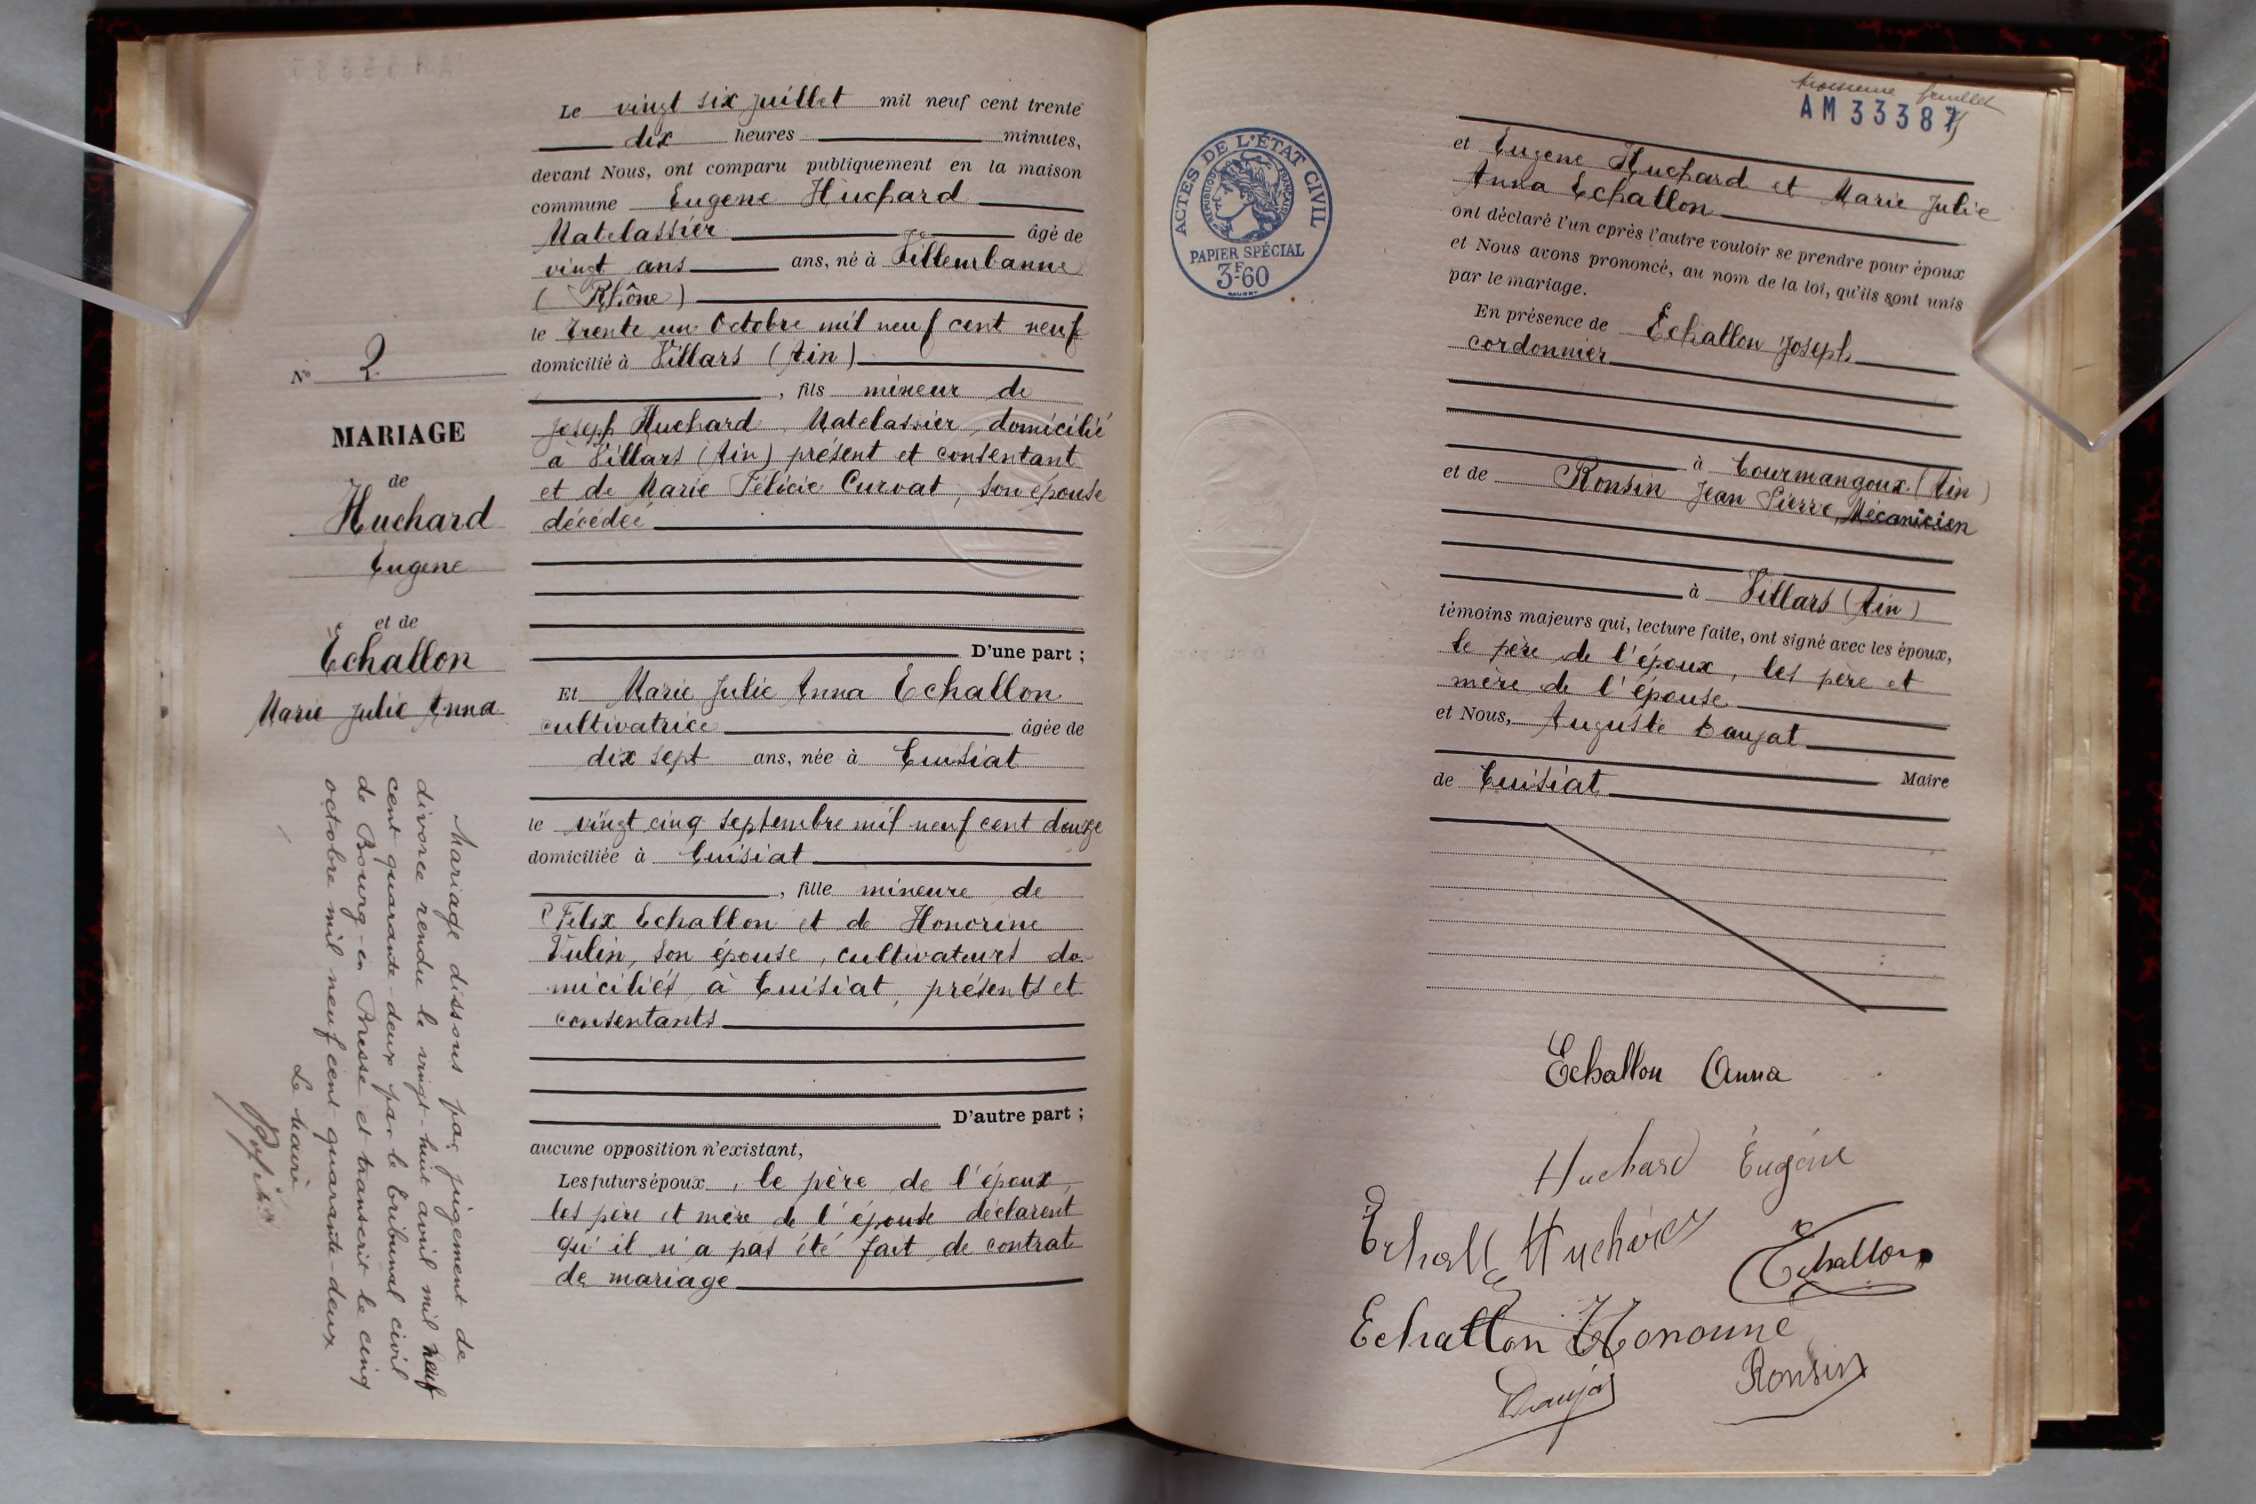 N° 2
MARIAGE
de
Huchard
Eugene
et de
Echallon
Marie Julie Anna
Mariage dissous par jugement de
divorce rendu le vingt-huit avril mil neuf
cent quarante-deux par le tribunal civil
de Bourg-en-Bresse et transcrit le cinq
octobre mil neuf cent quarante-deux
Le Maire
Le vingt six juillet mil neuf cent trente
dix heures minutes,
devant Nous, ont comparu publiquement en la maison
commune Eugene Huchard
Matelassier âgé de
vingt ans ans, né à Villeurbanne
(Rhône)
le trente un Octobre mil neuf cent neuf
domicilié à Villars (Ain)
, fils mineur de
Joseph Huchard, Matelassier, domicilié
à Villars (Ain) présent et consentant
et de Marie Félicie Curvat, son épouse
décédée
D'une part ;
Et Marie Julie Anna Echallon
cultivatrice âgée de
dix sept ans, née à Cuisiat
le vingt cinq septembre mil neuf cent douze
domiciliée à Cuisiat
, fille mineure de
Félix Echallon et de Honorine
Vulin, son épouse, cultivateurs do-
miciliés à Cuisiat, présents et
consentants
D'autre part ;
aucune opposition n'existant,
Les futurs époux, le père de l'époux,
les père et mère de l'épouse déclarent
qu'il n'a pas été fait de contrat
de mariage
troisième feuillet
AM 33387
ACTES DE L'ÉTAT CIVIL
RÉPUBLIQUE FRANÇAISE
PAPIER SPÉCIAL
3F.60
et Eugene Huchard et Marie Julie
Anna Echallon
ont déclaré l'un après l'autre vouloir se prendre pour époux
et Nous avons prononcé, au nom de la loi, qu'ils sont unis
par le mariage.
En présence de Echallon Joseph
cordonnier
à Courmangoux (Ain)
et de Ronsin Jean Pierre, Mécanicien
à Villars (Ain)
témoins majeurs qui, lecture faite, ont signé avec les époux,
le père de l'époux, les père et
mère de l'épouse
et Nous, Auguste Daujat
Maire
de Cuisiat
Echallon Anna
Huchard Eugéne
Echall Huchard
Echallon
Echallon Honorine
Daujat
Ronsin